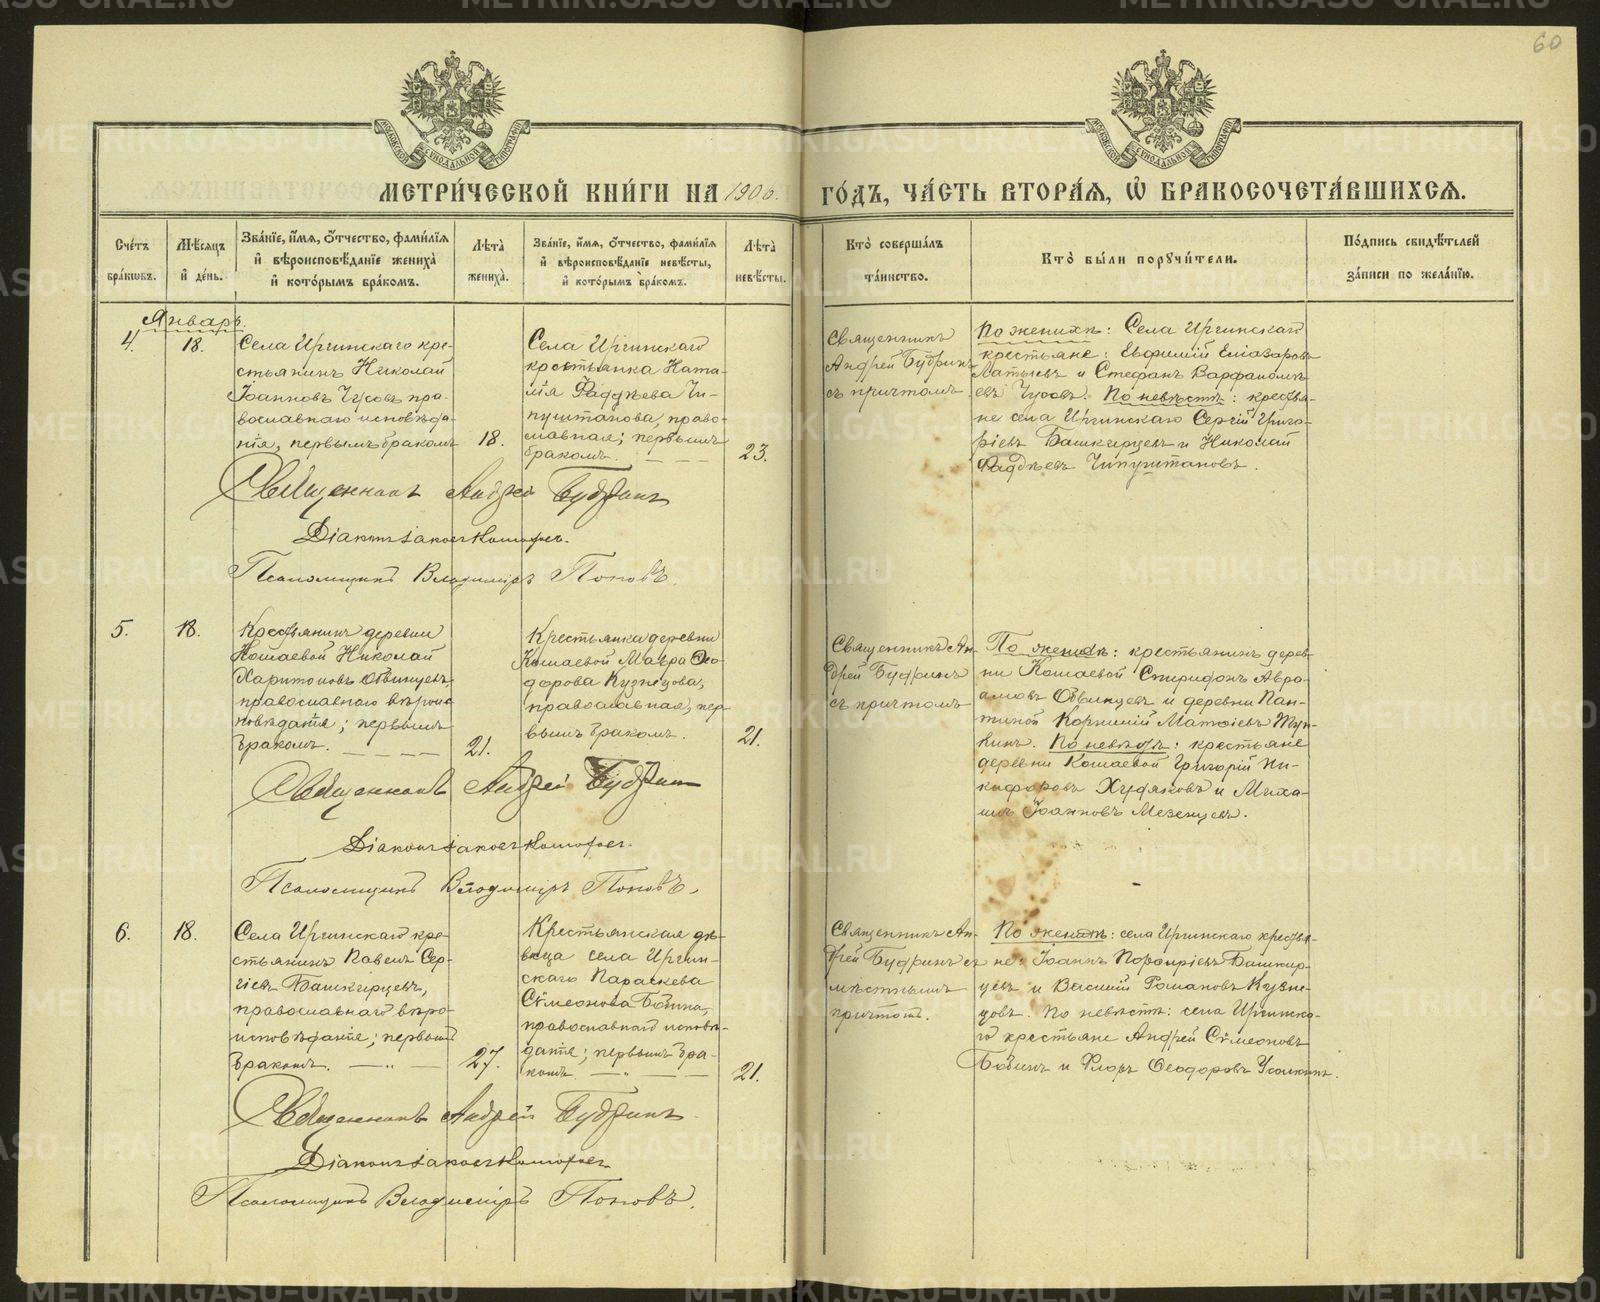 60
МОСКОВСКОЙ СѴНОДАЛЬНОЙ ТИПОГРАФІИ
МОСКОВСКОЙ СѴНОДАЛЬНОЙ ТИПОГРАФІИ
МЕТРИ́ЧЕСКОЙ КНИ́ГИ НА 1906. ГО́ДЪ, ЧА́СТЬ ВТОРА́Я, Ѡ БРАКОСОЧЕТА́ВШИХСЯ.
Сче́тъ бра́кωвъ.
Мѣ́сяцъ и҆ де́нь.
Зва́нїе, и҆́мя, ѻ҆́тчество, фами́лїя и҆ вѣроисповѣ́данїе жениха̀ и҆ кото́рымъ бра́комъ.
Лѣ́та жениха̀.
Зва́нїе, и҆́мя, ѻ҆́тчество, фами́лїя и҆ вѣроисповѣ́данїе невѣ́сты, и҆ кото́рымъ бра́комъ.
Лѣ́та невѣ́сты.
Кто̀ соверша́лъ та́инство.
Кто̀ бы́ли порꙋчи́тели.
По́дпись свидѣ́телей за́писи по жела́нїю.
Январь.
4.
18.
Села Иргинскаго кре-
стьянинъ Николай
Іоанновъ Чусовъ пра-
вославнаго исповѣда-
нія, первымъ бракомъ
18.
Села Иргинскаго
крестьянка Ната-
лія Фаддѣева Чи-
пуштанова, право-
славная; первымъ
бракомъ.
23.
Священникъ
Андрей Будринъ
съ причтомъ
По женихѣ: Села Иргинскаго
крестьяне: Евфимій Елиазаровъ
Латыевъ и Стефанъ Варфаломѣ-
евъ Чусовъ. По невѣстѣ: крестья-
не села Иргинскаго Сергій Григо-
ріевъ Башкирцевъ и Николай
Фаддѣевъ Чипуштановъ.
Священникъ Андрей Будринъ
Діаконъ Іаковъ
Псаломщикъ Владиміръ Поповъ.
5.
18.
Крестьянинъ деревни
Кошаевой Николай
Харитоновъ Обвинцевъ,
православнаго вѣроис-
повѣданія; первымъ
бракомъ.
21.
Крестьянка деревни
Кошаевой Мавра Ѳео-
дорова Кузнецова,
православная, пер-
вымъ бракомъ.
21.
Священникъ Ан-
дрей Будринъ
съ причтомъ
По женихѣ: крестьянинъ дерев-
ни Кошаевой Спиридонъ Авра-
амовъ Обвинцевъ и деревни Пан-
тиной Корнилій Матѳіевъ
По невѣстѣ: крестьяне
деревни Кошаевой Григорій Ни-
кифоровъ Худяковъ и Миха-
илъ Іоанновъ Мезенцевъ.
Священникъ Андрей Будринъ
Діаконъ Іаковъ
Псаломщикъ Владиміръ Поповъ.
6.
18.
Села Иргинскаго кре-
стьянинъ Павелъ Сер-
гіевъ Башкирцевъ,
православнаго вѣро-
исповѣданія; первымъ
бракомъ.
27.
Крестьянская дѣ-
вица села Иргин-
скаго Параскева
Сѵмеонова Бобина,
православнаго исповѣ-
данія; первымъ бра-
комъ.
21.
Священникъ Ан-
дрей Будринъ съ
мѣстнымъ
причтомъ.
По женихѣ: села Иргинскаго крестья-
не: Іоаннъ Порфиріевъ Башкир-
цевъ и Василій Романовъ Кузне-
цовъ. По невѣстѣ: села Иргинска-
го крестьяне Андрей Сѵмеоновъ
Бобинъ и Флоръ Ѳеодоровъ Усолкинъ.
Священникъ Андрей Будринъ
Діаконъ Іаковъ
Псаломщикъ Владиміръ Поповъ.
METRIKI.GASO-URAL.RU